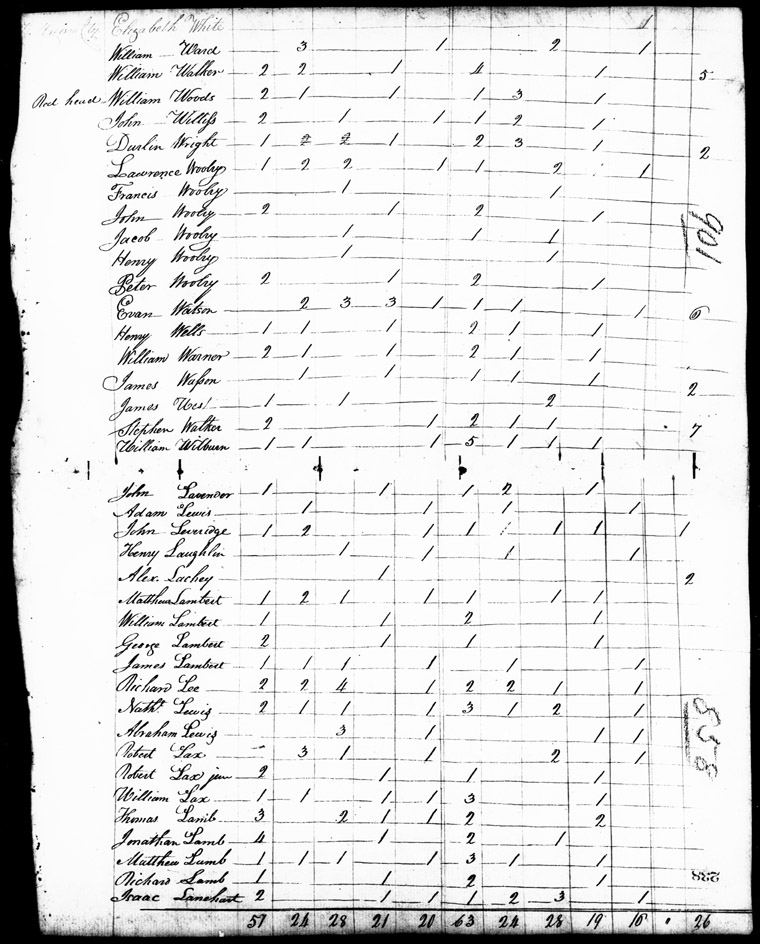 Elizabeth White 1
William Ward 3 1 2 1
William Walker 2 2 1 4 1 5
Red head William Woods 2 1 1 1 3 1
John Willess 2 1 1 1 2 1
Durlin Wright 1 2 2 1 2 3 1 2
Lawrence Woolry 1 2 2 1 1 2 1
Francis Woolry 1 1
John Woolry 2 1 2 1
Jacob Woolry 1 1 1
Henry Woolry 1 1
Peter Woolry 2 1 2 1
Evan Watson 2 3 3 1 1 1 1 6
Henry Wells 1 1 1 2 1 1
William Warner 2 1 1 2 1 1
James Wasson 1 1 1 1 1 2
James West 1 1 2
Stephen Walker 2 1 2 1 1 7
William Wilburn 1 1 1 5 1 1 1
901
John Lavender 1 1 1 2 1
Adam Lewis 1 1 1 1
John Leveridge 1 2 1 1 1 1 1 1
Henry Laughlin 1 1 1 1
Alex. Lachey 1 2
Matthew Lambert 1 2 1 1 1 1 1
William Lambert 1 1 2 1
George Lambert 2 1 1 1
James Lambert 1 1 1 1 1 1
Richard Lee 2 2 4 1 2 2 1 1
Nath. Lewis 2 1 1 1 3 1 2 1
Abraham Lewis 3 1 1 1
Robert Lax 3 1 1 2 1
Robert Lax jun 2 1 1 1
William Lax 1 1 1 1 3 1
Thomas Lamb 3 2 1 1 2 2
Jonathan Lamb 4 1 2 1
Matthew Lamb 1 1 1 1 3 1 1
Richard Lamb 1 1 2 1
Isaac Lanehart 2 1 1 1 2 3 1
558
238
57 24 28 21 20 63 24 28 19 10 26